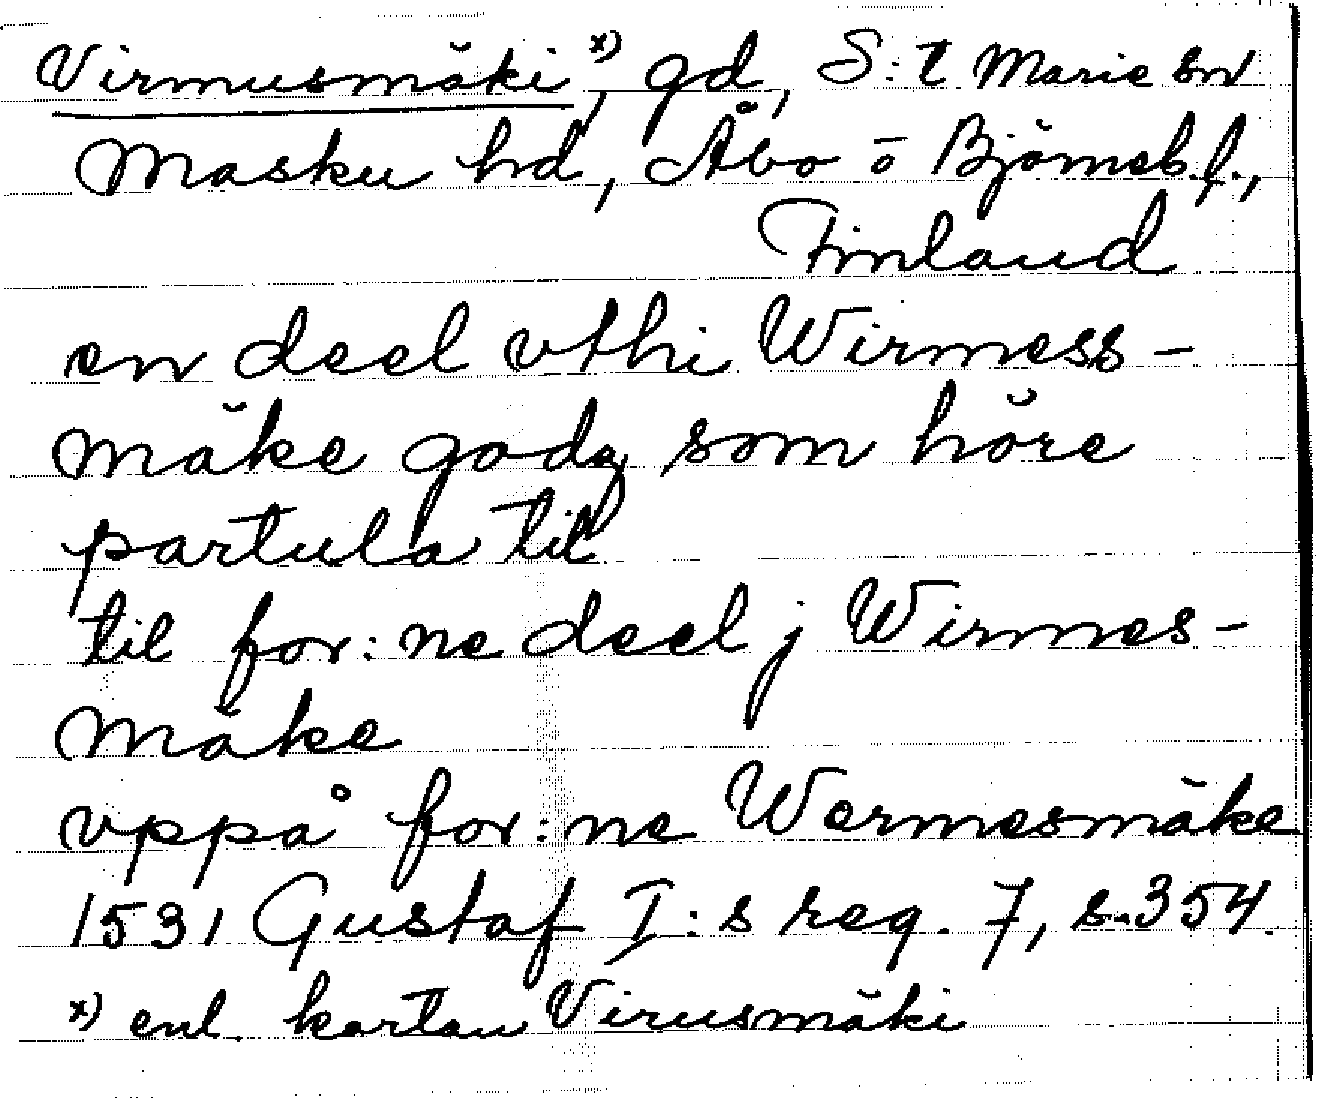 Virmusmäki x), gd, S:t Marie sn
Masku hd, Åbo o Björneb.l.,
Finland
en deel vthi Wirmess-
mäke godz som höre
partula til
til for:ne deel j Wirmes-
mäke
vppå for:ne Wermesmäke
1531 Gustaf I:s reg. 7, s. 354.
x) enl. kartan Virusmäki